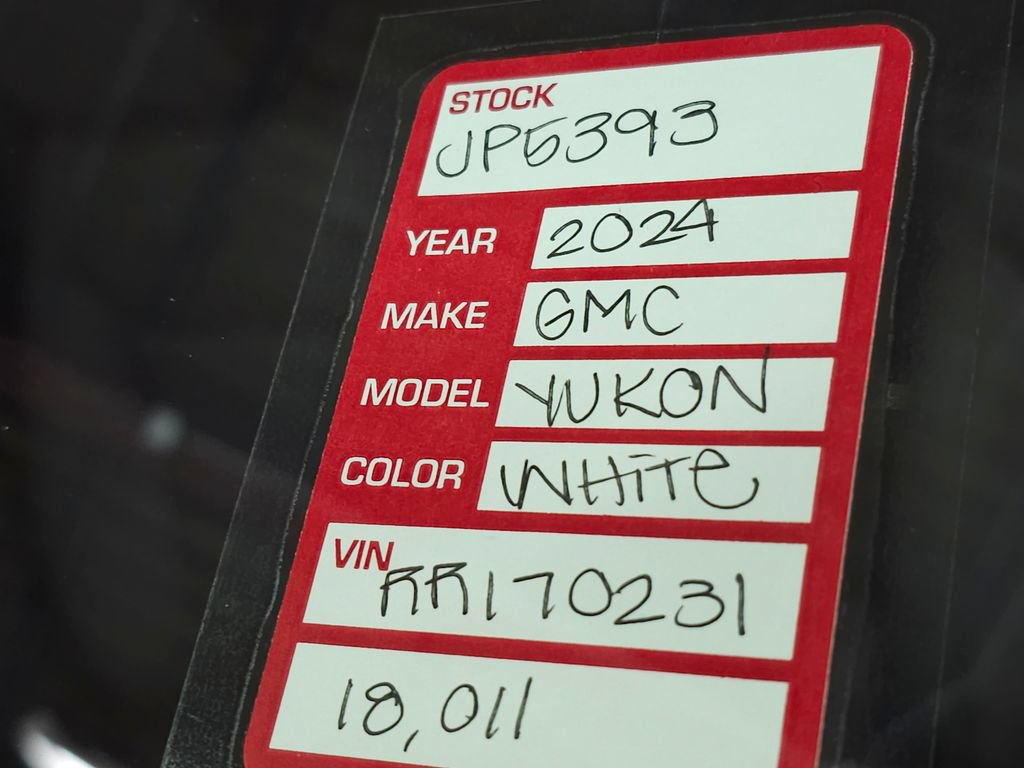 STOCK
JP5393
YEAR 2024
MAKE GMC
MODEL YUKON
COLOR WHiTe
VIN RR170231
18,011